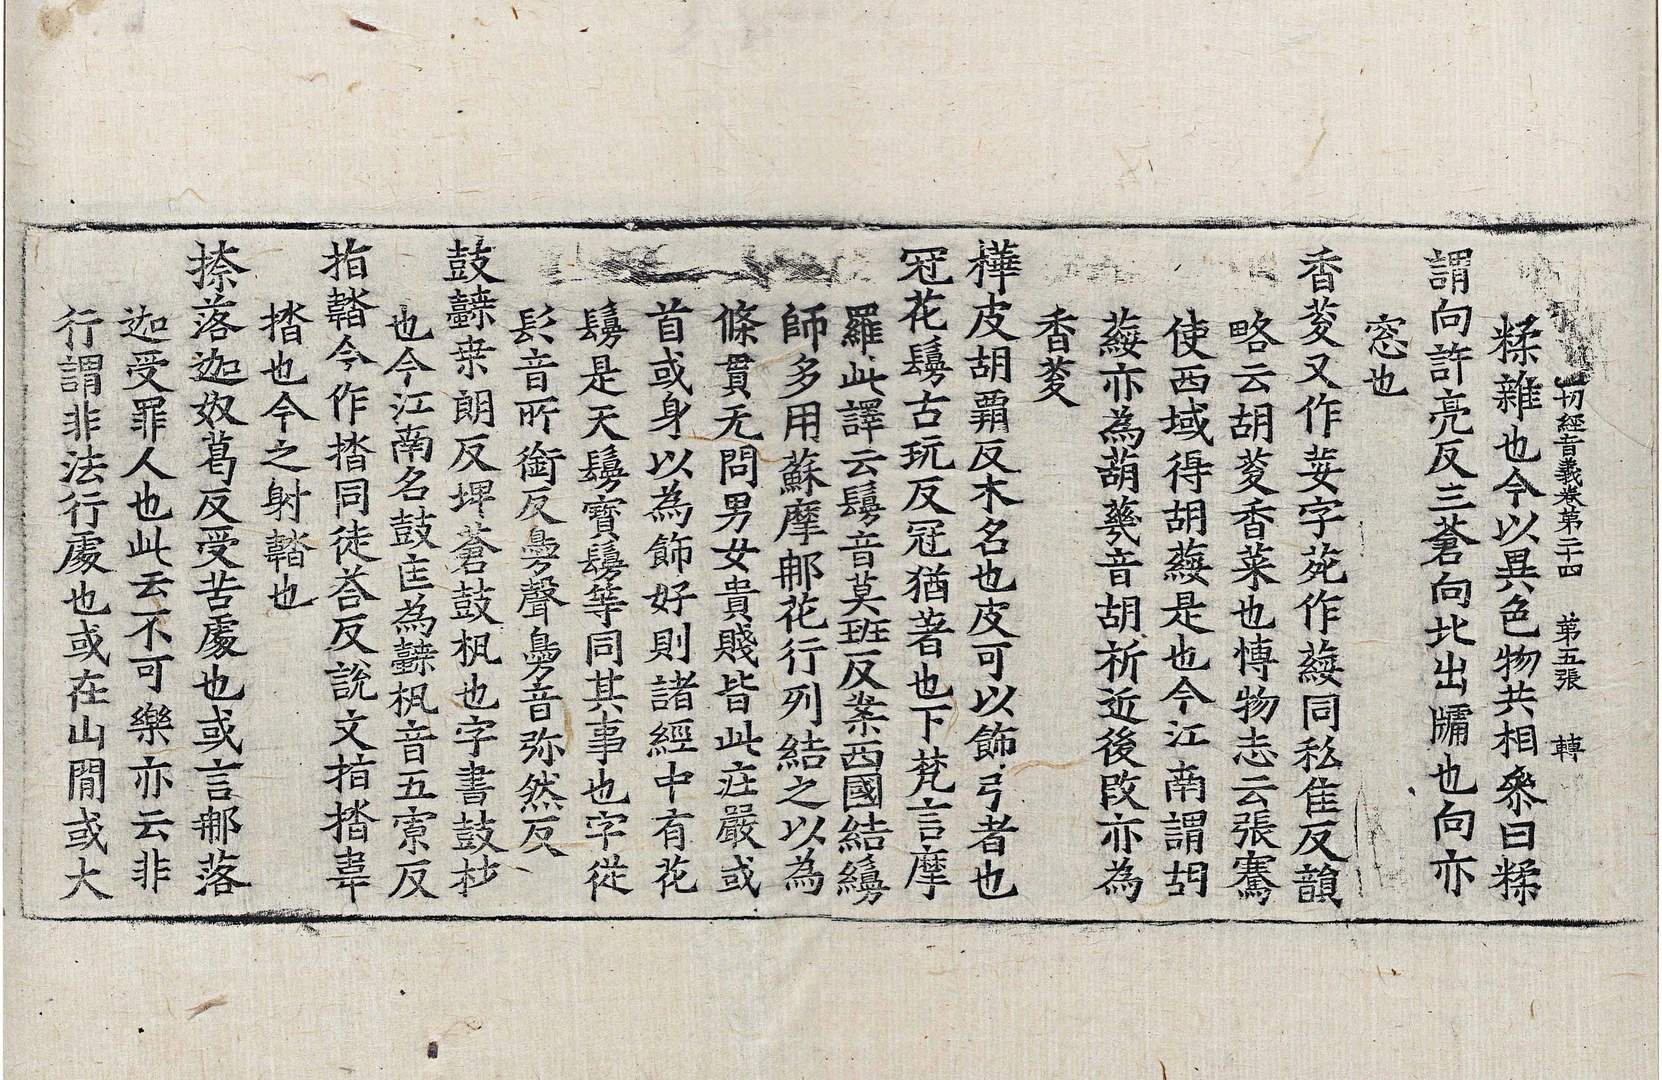 一切經音義卷第二十四 第五張 轉
糅雜也今以異色物共相叅曰糅
謂向許亮反三蒼向北出牖也向亦
窓也
香荽又作荾字苑作䕑同私隹反韻
略云胡荽香菜也博物志云張騫
使西域得胡䕑是也今江南謂胡
䕑亦為葫䔇音胡祈近後改亦為
香荽
樺皮胡霸反木名也皮可以飾弓者也
冠花鬘古玩反冠猶著也下梵言摩
羅此譯云鬘音莫班反案西國結鬘
師多用蘇摩那花行列結之以為
條貫无問男女貴賤皆此庄嚴或
首或身以為飾好則諸經中有花
鬘是天鬘寶鬘等同其事也字從
髟音所銜反㝱聲㝱音弥然反
鼓䶀桒朗反埤蒼鼓棞也字書鼓杪
也今江南名鼓匡為䶀棞音五寡反
指韜今作揩同徒荅反說文指揩韋
揩也今之射韜也
捺落迦奴葛反受苦處也或言那落
迦受罪人也此云不可樂亦云非
行謂非法行處也或在山間或大